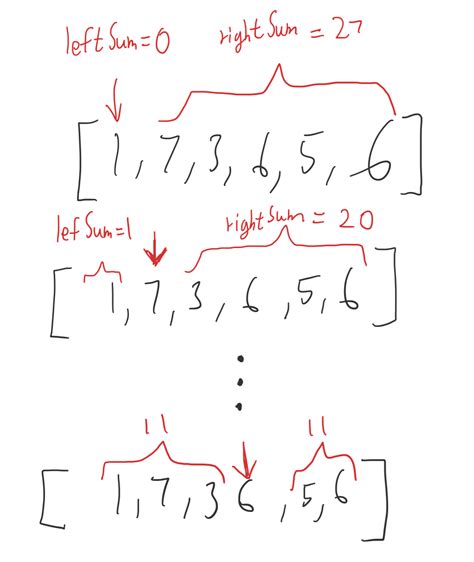 leftSum=0 rightSum = 27
[1, 7, 3, 6, 5, 6]
lefSum=1 rightSum = 20
[1, 7, 3, 6, 5, 6]
11 11
[1, 7, 3 6, 5, 6]